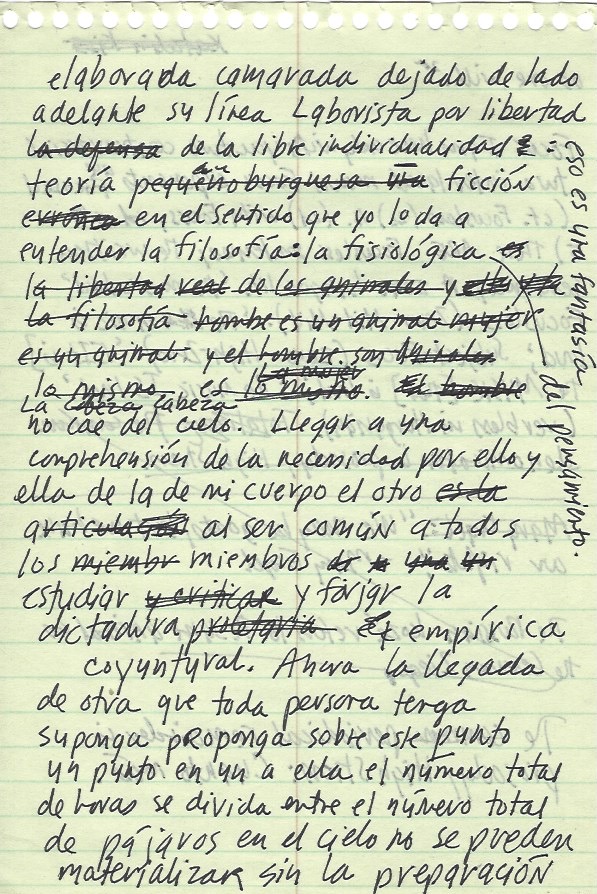 elaborada camarada dejado de lado
adelante su línea Laborista por libertad
la defensa de la libre individualidad :
teoría pequeñoburguesa una ficción
errónea en el sentido que yo lo da a
entender la filosofía: la fisiológica es
la libertad real de los animales y ella y la
la filosofía hombre es un animal mujer
es un animal y el hombre son animales
lo mismo es lo mismo. El hombre
la mujer
La cabeza cabeza
no cae del cielo. Llegar a una
comprehensión de la necesidad por ello y
ella de la de mi cuerpo el otro es la
articulación al ser común a todos
los miembr miembros de una un
estudiar y criticar y forjar la
dictadura proletaria empírica
coyuntural. Ahora la llegada
de otra que toda persona tenga
suponga proponga sobre este punto
un punto en un a ella el número total
de horas se divida entre el número total
de pájaros en el cielo no se pueden
materializar sin la preparación
eso es una fantasía
del pensamiento.